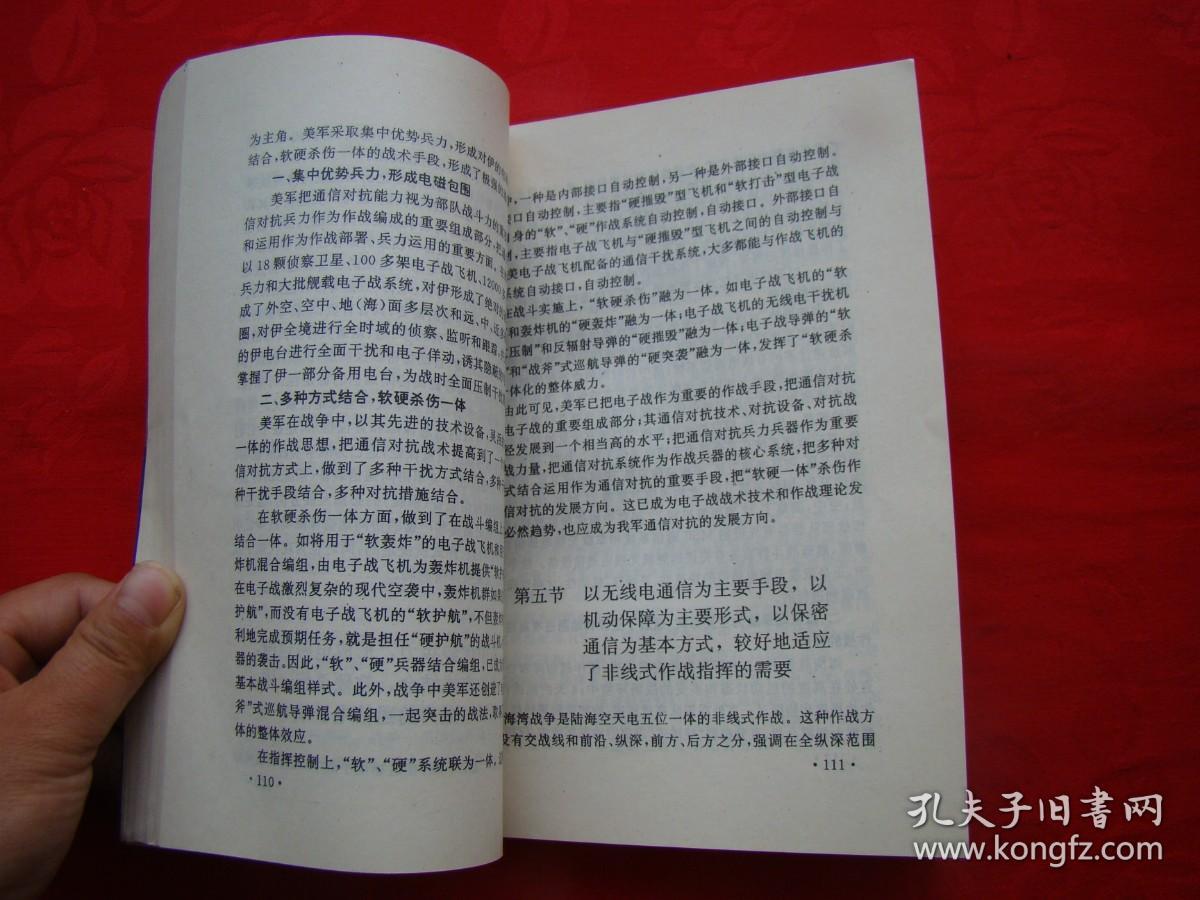 为主角。美军采取集中优势兵力，形成对伊的
结合，软硬杀伤一体的战术手段，形成了极强
一、集中优势兵力，形成电磁包围
美军把通信对抗能力视为部队战斗力的
信对抗兵力作为作战编成的重要组成部分，把
和运用作为作战部署、兵力运用的重要方面。
以18颗侦察卫星、100多架电子战飞机、12000
兵力和大批舰载电子战系统，对伊形成了绝对
成了外空、空中、地（海）面多层次和远、中、近
圈，对伊全境进行全时域的侦察、监听和跟踪，
的伊电台进行全面干扰和电子佯动，诱其隐蔽
掌握了伊一部分备用电台，为战时全面压制干扰
二、多种方式结合，软硬杀伤一体
美军在战争中，以其先进的技术设备，灵活
一体的作战思想，把通信对抗战术提高到了一
信对抗方式上，做到了多种干扰方式结合，多种
种干扰手段结合，多种对抗措施结合。
在软硬杀伤一体方面，做到了在战斗编组上
结合一体。如将用于“软轰炸”的电子战飞机和
炸机混合编组，由电子战飞机为轰炸机提供“软护
在电子战激烈复杂的现代空袭中，轰炸机群如果
护航”，而没有电子战飞机的“软护航”，不但轰
利地完成预期任务，就是担任“硬护航”的战斗机
器的袭击。因此，“软”、“硬”兵器结合编组，已成
基本战斗编组样式。此外，战争中美军还创造了
斧”式巡航导弹混合编组，一起突击的战法，取
体的整体效应。
在指挥控制上，“软”、“硬”系统联为一体，
·110·
，一种是内部接口自动控制，另一种是外部接口自动控制。
接口自动控制，主要指“硬摧毁”型飞机和“软打击”型电子战
身的“软”、“硬”作战系统自动控制，自动接口。外部接口自
制，主要指电子战飞机与“硬摧毁”型飞机之间的自动控制与
美电子战飞机配备的通信干扰系统，大多都能与作战飞机的
系统自动接口，自动控制。
在战斗实施上，“软硬杀伤”融为一体。如电子战飞机的“软
”和轰炸机的“硬轰炸”融为一体；电子战飞机的无线电干扰机
压制”和反辐射导弹的“硬摧毁”融为一体；电子战导弹的“软
”和“战斧”式巡航导弹的“硬突袭”融为一体，发挥了“软硬杀
一体化的整体威力。
由此可见，美军已把电子战作为重要的作战手段，把通信对抗
电子战的重要组成部分；其通信对抗技术、对抗设备、对抗战
经发展到一个相当高的水平；把通信对抗兵力兵器作为重要
战力量，把通信对抗系统作为作战兵器的核心系统，把多种对
式结合运用作为通信对抗的重要手段，把“软硬一体”杀伤作
信对抗的发展方向。这已成为电子战战术技术和作战理论发
必然趋势，也应成为我军通信对抗的发展方向。
第五节 以无线电通信为主要手段，以
机动保障为主要形式，以保密
通信为基本方式，较好地适应
了非线式作战指挥的需要
海湾战争是陆海空天电五位一体的非线式作战。这种作战方
没有交战线和前沿、纵深，前方、后方之分，强调在全纵深范围
·111·
孔夫子旧書网
www.kongfz.com